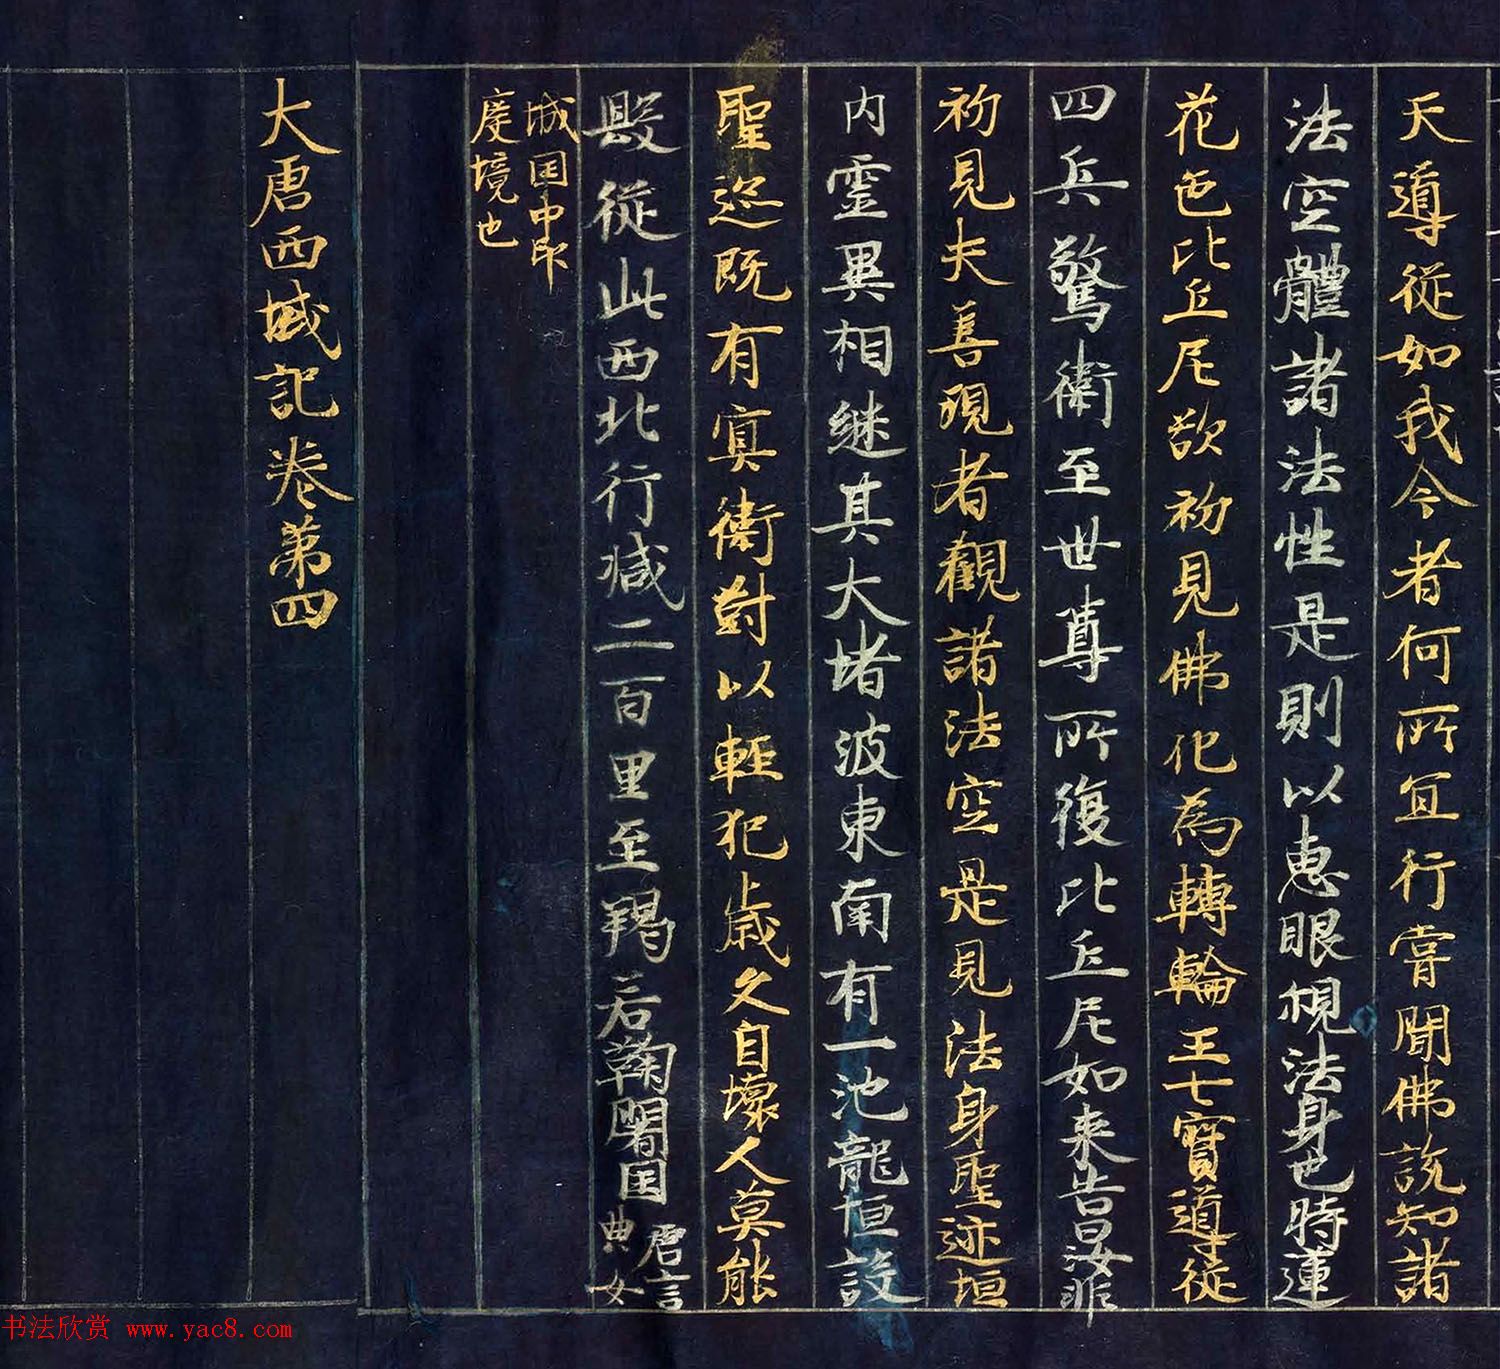 天導從如我今者何所宜行甞聞佛說知諸
法空體諸法性是則以惠眼視法身也時蓮
花色比丘尼欲初見佛化為轉輪王七寶導從
四兵驚衛至世尊所復比丘尼如来告曰汝非
初見夫善現者觀諸法空是見法身聖迹垣
内霊異相継其大堵波東南有一池龍恒設
聖巡既有寘衛對以輕犯歳久自壞人莫能
毀從此西北行减二百里至羯若鞠闍国唐言
典女
城国中印
度境也
大唐西域記卷第四
书法欣赏 www.yac8.com